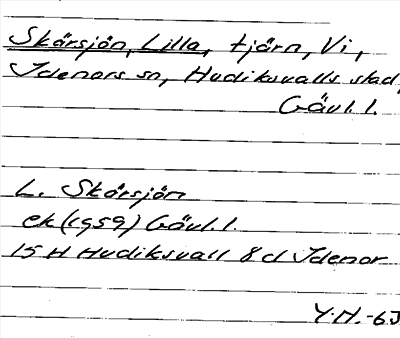 Skårsjön, Lilla, tjärn, Vi,
Idenors sn, Hudiksvalls stad,
Gävl. l.
L. Skårsjön
ek (1959) Gävl. l.
15 H Hudiksvall 8 d Idenor
Y.H.-63